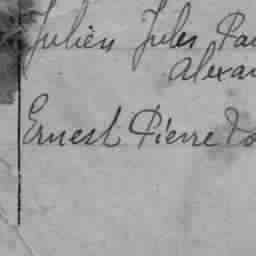 Julien Jules Pau
Alexan
Ernest Pierre